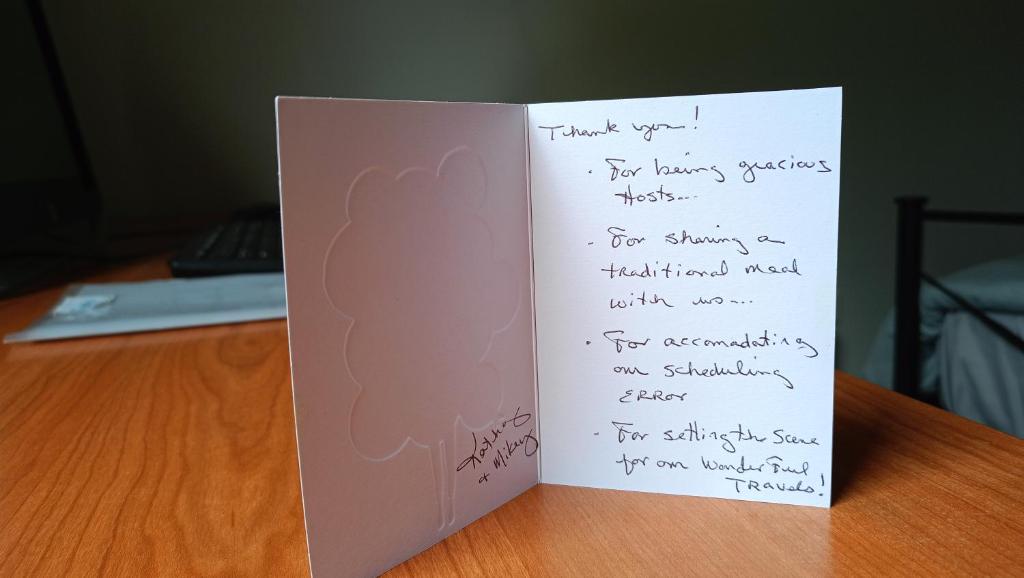 Kathy
& Mikey
Thank you!
. For being gracious
Hosts...
- For sharing a
traditional meal
with us...
. For accomadating
our scheduling
ERROR
- For setting the scene
for our wonderful
TRAVELS!